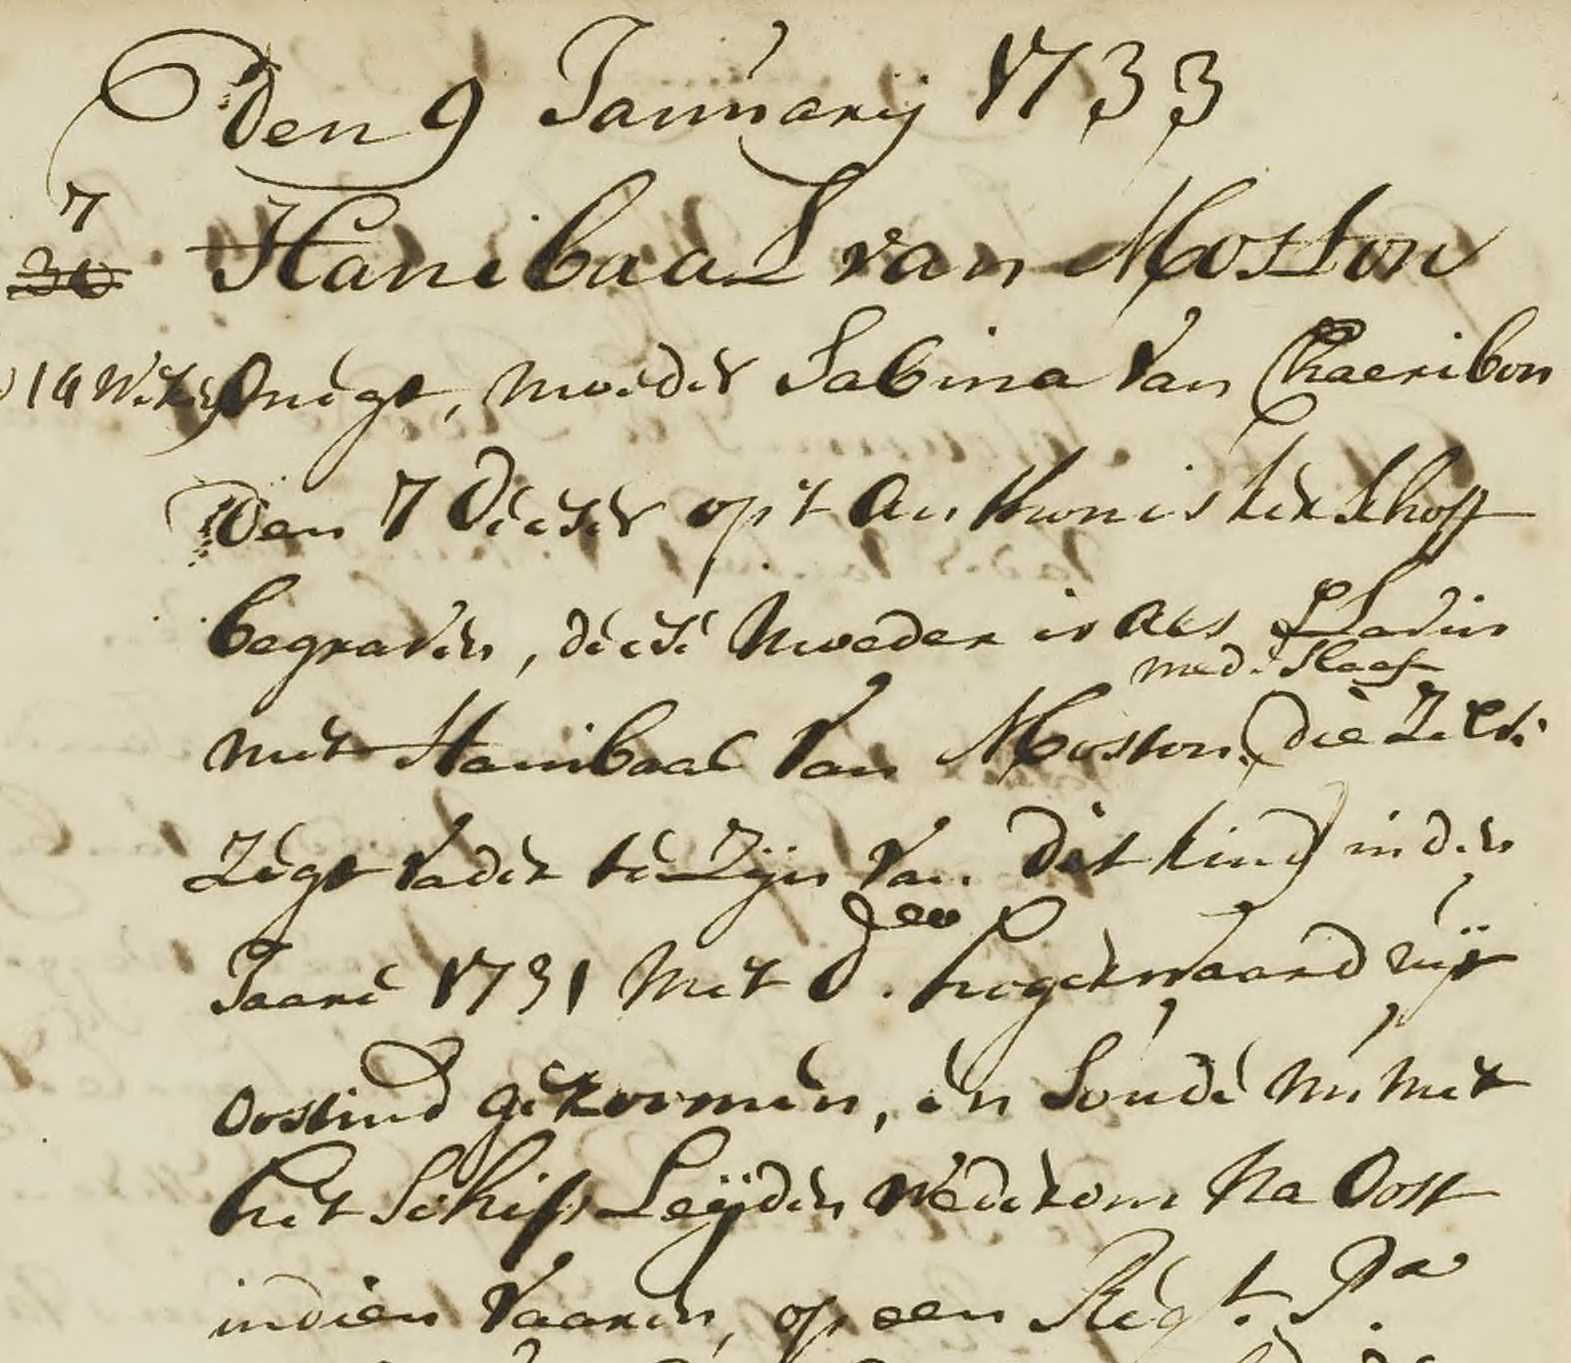 Den 9 Januarij 1733
7
30
Hanibaal van Moston
14 Weken
Onegt, moeder Sabina van Chaeribon
Den 7 deeser op 't Anthonis kerkhoff
begraven, deese moeder is als Slavin
med. Slaaf
met Hanibaal van Moston. (die Zelve
Zegt vader te Zijn van dit kind) in den
Jaare 1731 met d. hogerwaard uijt
den
Oostind gekoomen, en Soude nu met
het Schip Leijden wederom na Oost
indien vaaren, op een Regt. Pa.